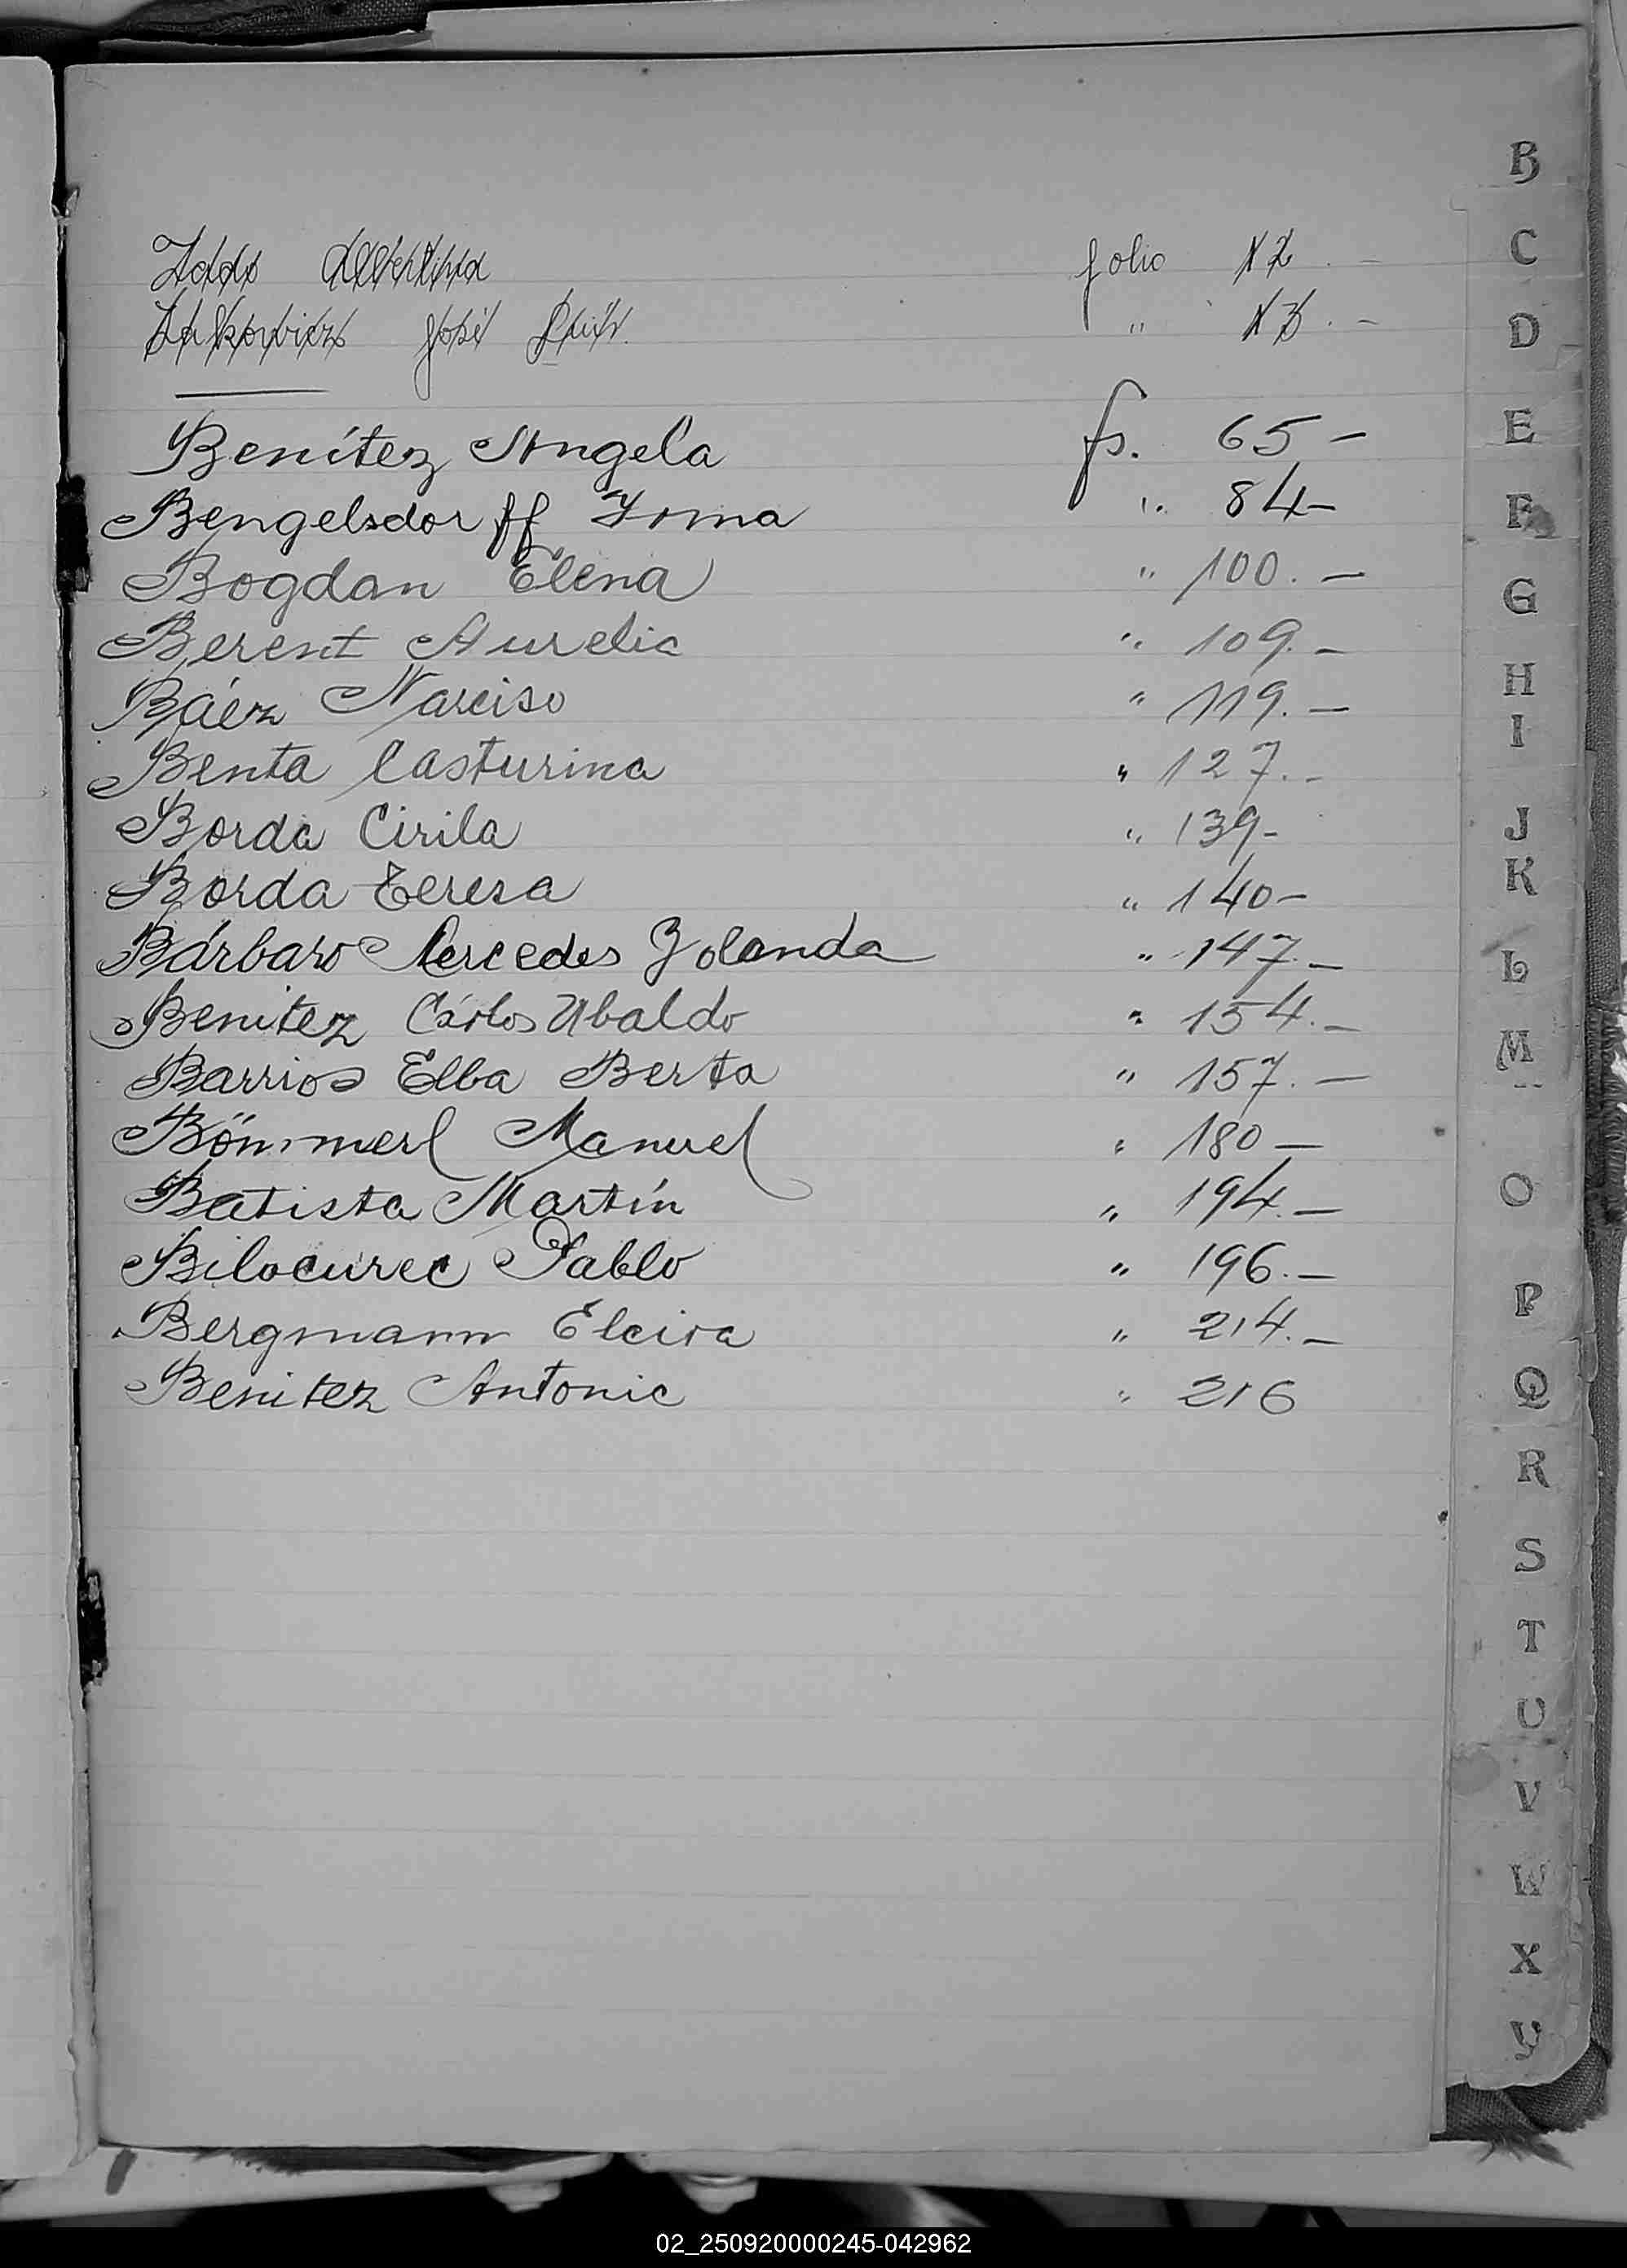 folio 12. -
" 13. -
Benítez Angela fs. 65 -
Bengelsdorff Irma " 84 -
Bogdan Elena " 100. -
Berent Aurelia " 109. -
Báez Narciso " 119. -
Benta Casturina " 127. -
Borda Cirila " 139 -
Borda Teresa " 140 -
Bárbaro Mercedes Yolanda " 147. -
Benitez Cárlos Ubaldo " 154. -
Barrios Elba Berta " 157. -
Bömmerl Manuel " 180 -
Batista Martín " 194. -
Bilocurec Pablo " 196. -
Bergmann Elcira " 214. -
Benitez Antonio " 216
B
C
D
E
F
G
H
I
J
K
L
M
O
P
Q
R
S
T
U
V
W
X
Y
02_250920000245-042962